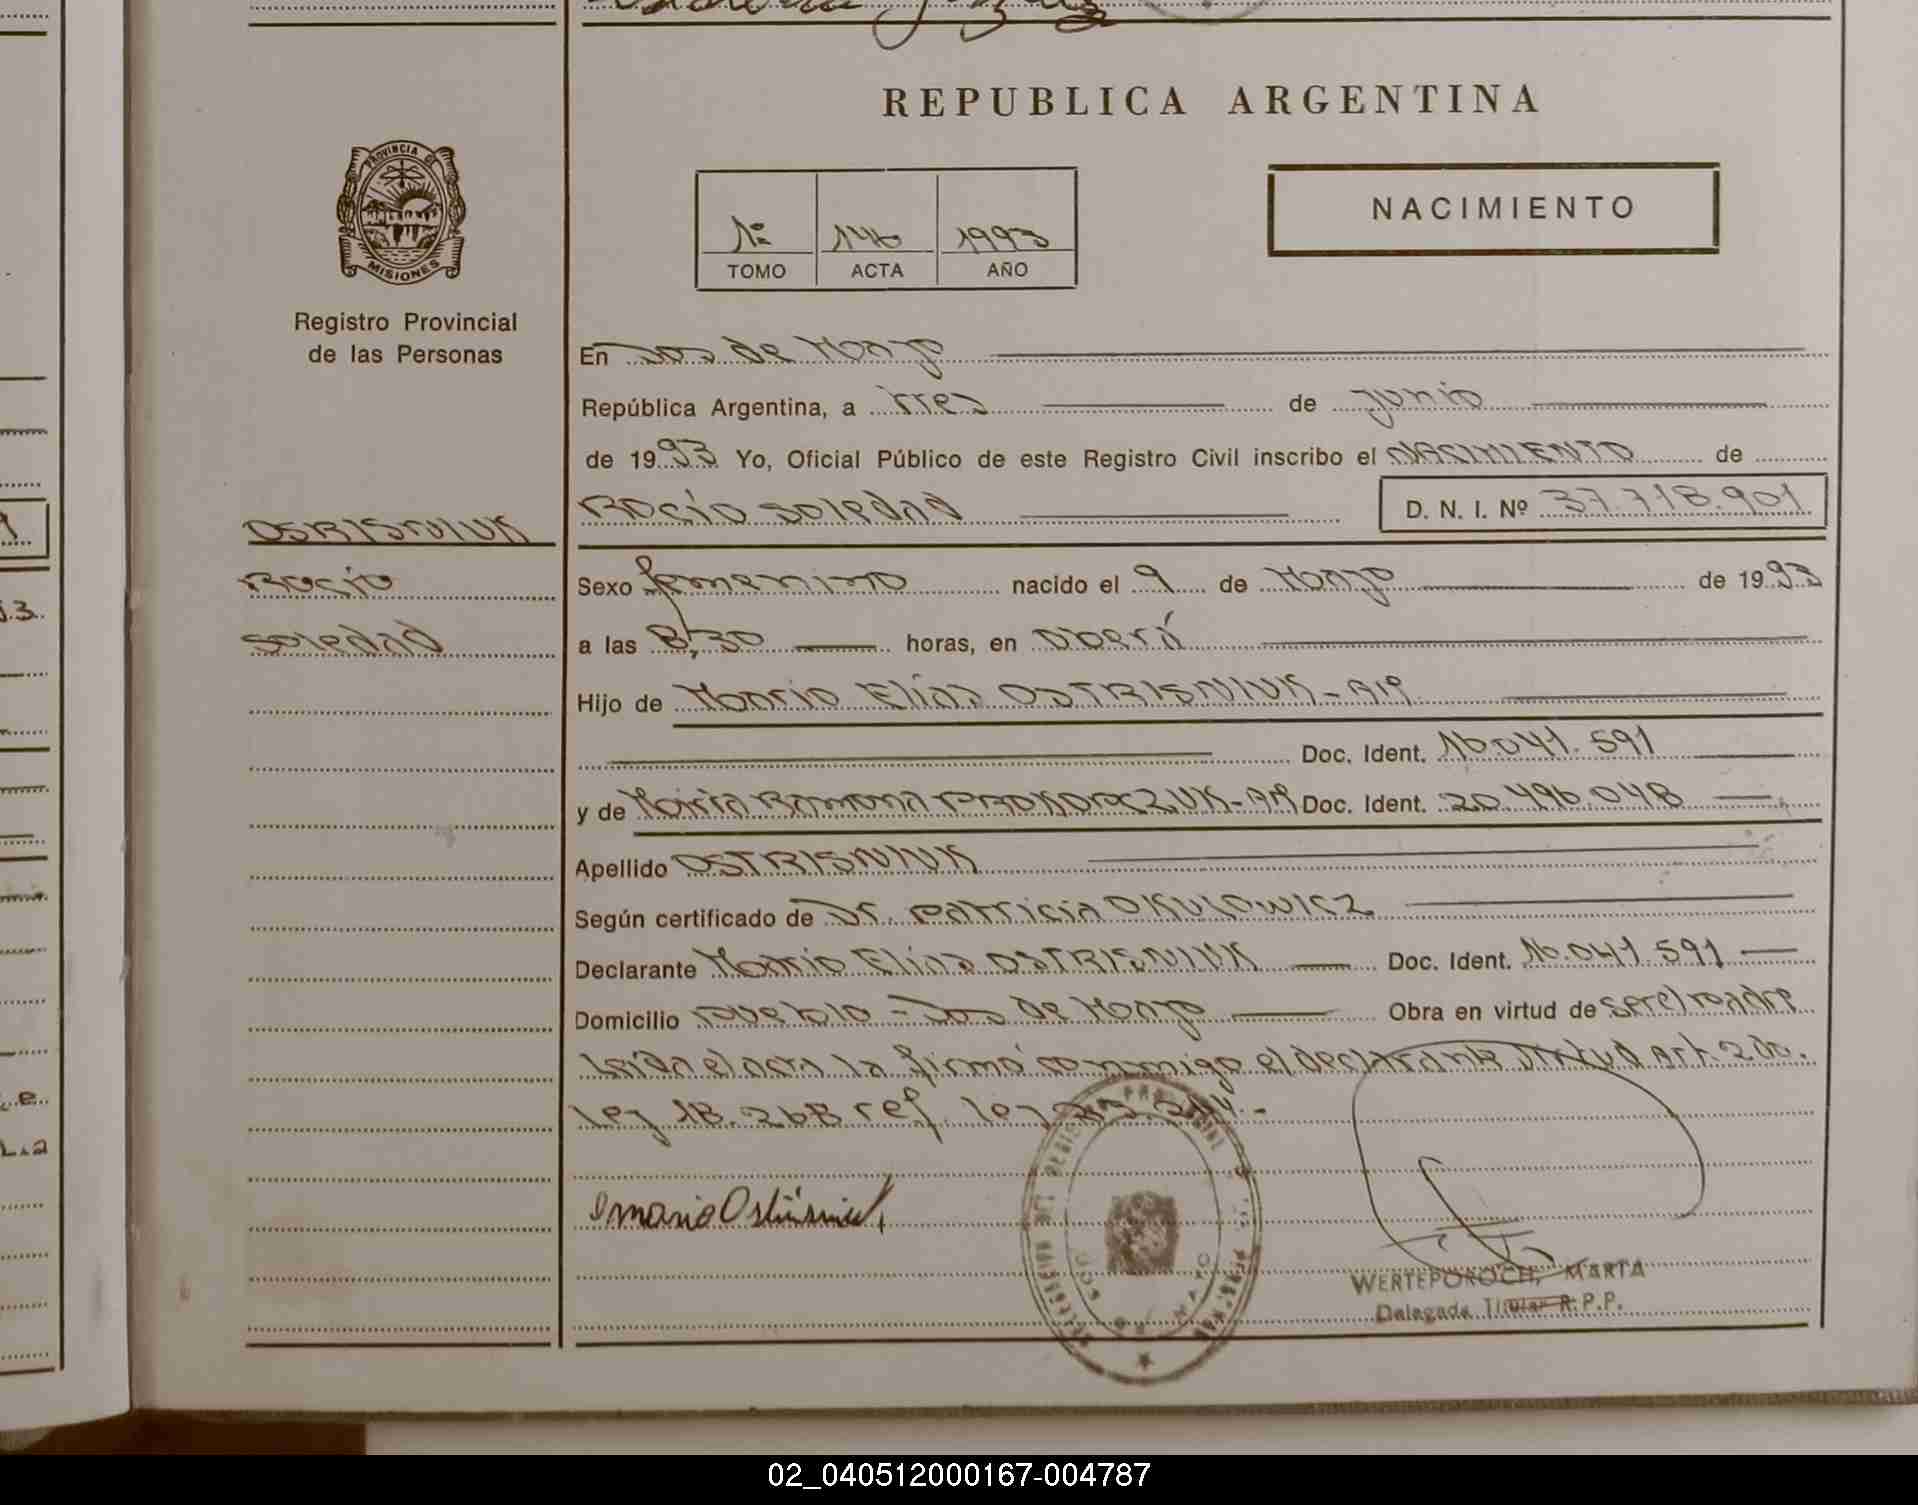 REPUBLICA ARGENTINA
PROVINCIA DE
MISIONES
Registro Provincial
de las Personas
1º 146 1993
TOMO ACTA AÑO
NACIMIENTO
En Dos de Mayo
República Argentina, a tres de junio
de 1993 Yo, Oficial Público de este Registro Civil inscribo el NACIMIENTO de
Rocío Soledad D. N. I. Nº 37.718.901
OSRISNIUK
Rocío
Soledad
Sexo femenino nacido el 9 de Mayo de 1993
a las 8,30 horas, en Oberá
Hijo de Mario Elías OSTRISNIUK - AR
Doc. Ident. 16.041.591
y de María Ramona Doc. Ident. 20.496.048
Apellido OSTRISNIUK
Según certificado de Dr. Patricia OKULOWICZ
Declarante Mario Elías OSTRISNIUK Doc. Ident. 16.041.591
Domicilio pueblo - Dos de Mayo Obra en virtud de ser el padre
Leída el acta la firmó conmigo el declarante Art. 2do.
Ley 18.268 ref. ley
Mario
DOS DE MAYO
WERTEPOROCH, MARTA
Delegada Titular R.P.P.
02_040512000167-004787